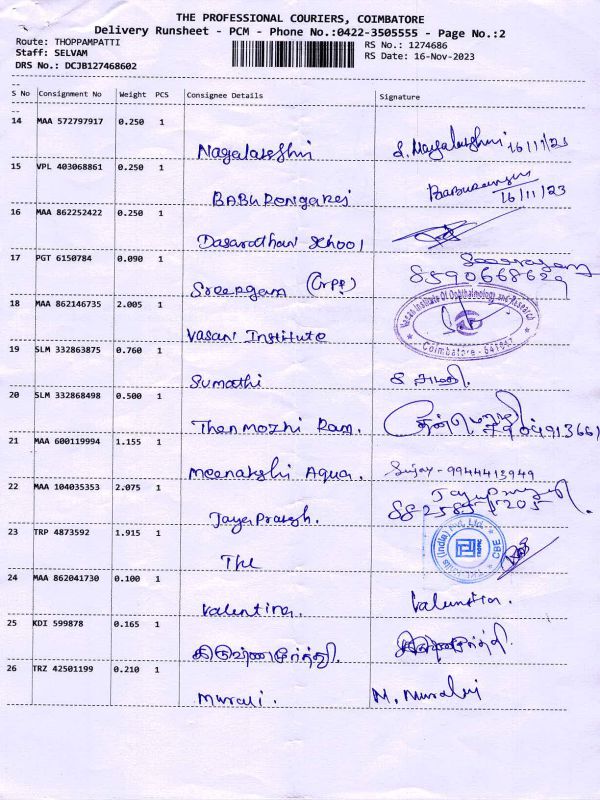 THE PROFESSIONAL COURIERS, COIMBATORE
Delivery Runsheet - PCM - Phone No.:0422-3505555 - Page No.:2
Route: THOPPAMPATTI RS No.: 1274686
Staff: SELVAM RS Date: 16-Nov-2023
DRS No.: DCJB127468602
S No Consignment No Weight PCS Consignee Details Signature
14 MAA 572797917 0.250 1
Nagalakshmi 16/11/23
15 VPL 403068861 0.250 1
16/11/23
16 MAA 862252422 0.250 1
Dasarathan School
17 PGT 6150784 0.090 1
8590668629
18 MAA 862146735 2.005 1
Vasan Institute Vasan Institute Of Ophthalmology and Research
Coimbatore
19 SLM 332863875 0.760 1
Sumathi
20 SLM 332868498 0.500 1
Thenmozhi Ram.
21 MAA 600119994 1.155 1
Meenakshi Aqua. Sujay - 9944413949
22 MAA 104035353 2.075 1
Jaya Prakash.
23 TRP 4873592 1.915 1
The CBE
24 MAA 862041730 0.100 1
Valentina. Valentina.
25 KDI 599878 0.165 1
26 TRZ 42501199 0.210 1
Murali. M. Murali